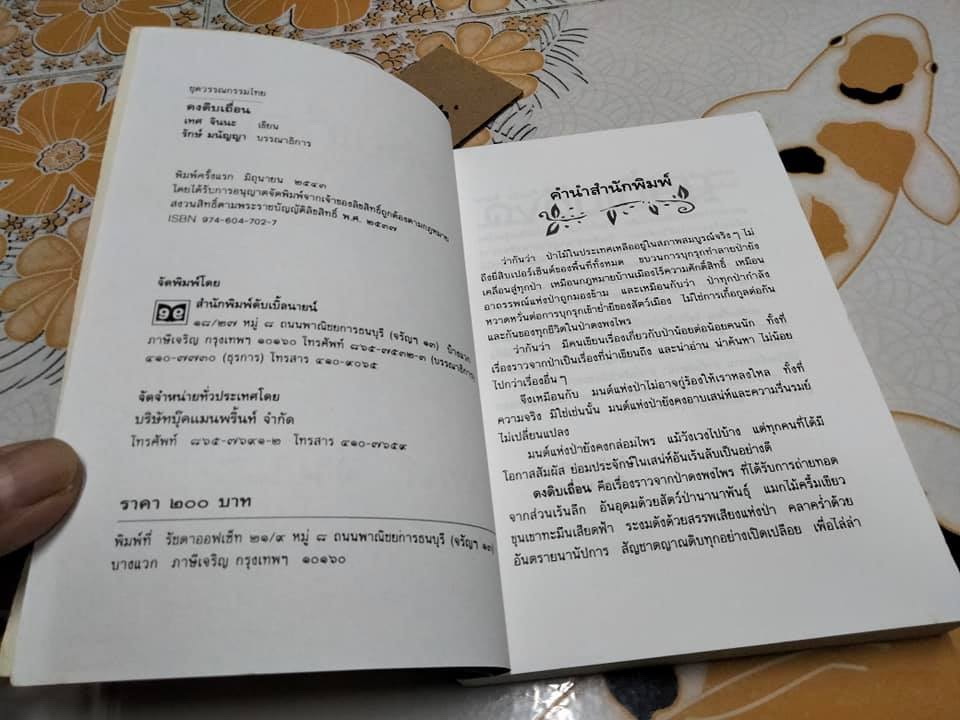 ชุดวรรณกรรมไทย
ดงดิบเถื่อน
เทศ จินนะ เขียน
รักษ์ มนัญญา บรรณาธิการ
พิมพ์ครั้งแรก มิถุนายน ๒๕๔๓
โดยได้รับการอนุญาตจัดพิมพ์จากเจ้าของลิขสิทธิ์ถูกต้องตามกฎหมาย
สงวนสิทธิ์ตามพระราชบัญญัติลิขสิทธิ์ พ.ศ. ๒๕๓๗
ISBN 974-604-702-7
จัดพิมพ์โดย
สำนักพิมพ์ดับเบิ้ลนายน์
๑๘/๒๗ หมู่ ๘ ถนนพาณิชยการธนบุรี (จรัญฯ ๑๓) บางแวก
ภาษีเจริญ กรุงเทพฯ ๑๐๑๖๐ โทรศัพท์ ๘๖๕-๗๕๓๒-๓ (บรรณาธิการ)
๔๑๐-๗๗๓๐ (ธุรการ) โทรสาร ๔๑๐-๙๐๖๕
จัดจำหน่ายทั่วประเทศโดย
บริษัทบุ๊คแมนพริ้นท์ จำกัด
โทรศัพท์ ๘๖๕-๗๖๙๑-๒ โทรสาร ๔๑๐-๗๖๕๙
ราคา ๒๐๐ บาท
พิมพ์ที่ รัชดาออฟเซ็ท ๒๑/๙ หมู่ ๘ ถนนพาณิชยการธนบุรี (จรัญฯ ๑๓)
บางแวก ภาษีเจริญ กรุงเทพฯ ๑๐๑๖๐
คำนำสำนักพิมพ์
ว่ากันว่า ป่าไม้ในประเทศเหลืออยู่ในสภาพสมบูรณ์จริงๆ ไม่
ถึงยี่สิบเปอร์เซ็นต์ของพื้นที่ทั้งหมด ขบวนการบุกรุกทำลายป่ายัง
เคลื่อนสู่ทุกป่า เหมือนกฎหมายบ้านเมืองไร้ความศักดิ์สิทธิ์ เหมือน
อาถรรพณ์แห่งป่าถูกมองข้าม และเหมือนกับว่า ป่าทุกป่ากำลัง
หวาดหวั่นต่อการบุกรุกเข้าย่ำยีของสัตว์เมือง ไม่ใช่การเกื้อกูลต่อกัน
และกันของทุกชีวิตในป่าดงพงไพร
ว่ากันว่า มีคนเขียนเรื่องเกี่ยวกับป่าน้อยต่อน้อยคนนัก ทั้งที่
เรื่องราวจากป่าเป็นเรื่องที่น่าเขียนถึง และน่าอ่าน น่าค้นหา ไม่น้อย
ไปกว่าเรื่องอื่นๆ
จึงเหมือนกับ มนต์แห่งป่าไม่อาจกู่ร้องให้เราหลงใหล ทั้งที่
ความจริง มิใช่เช่นนั้น มนต์แห่งป่ายังคงอาบเสน่ห์และความรื่นรมย์
ไม่เปลี่ยนแปลง
มนต์แห่งป่ายังคงกล่อมไพร แม้วังเวงไปบ้าง แต่ทุกคนที่ได้มี
โอกาสสัมผัส ย่อมประจักษ์ในเสน่ห์อันเร้นลับเป็นอย่างดี
ดงดิบเถื่อน คือเรื่องราวจากป่าดงพงไพร ที่ได้รับการถ่ายทอด
จากส่วนเร้นลึก อันอุดมด้วยสัตว์ป่านานาพันธุ์ แมกไม้ครึ้มเขียว
ขุนเขาทะมึนเสียดฟ้า ระงมดังด้วยสรรพเสียงแห่งป่า คลาคร่ำด้วย
อันตรายนานัปการ สัญชาตญาณดิบทุกอย่างเปิดเปลือย เพื่อไล่ล่า